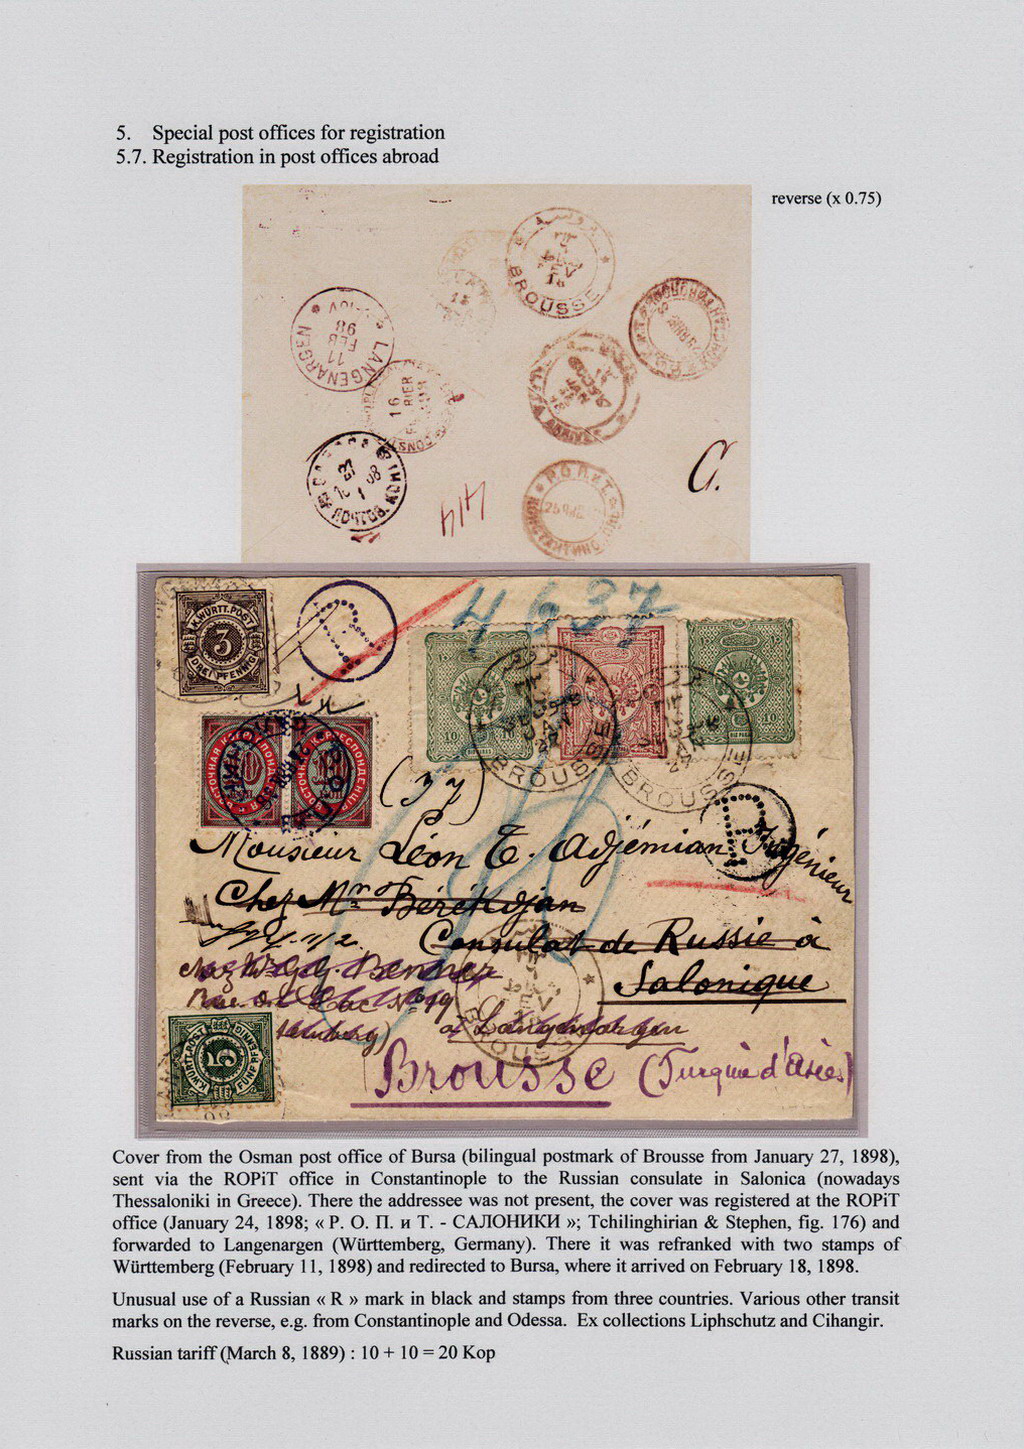 5. Special post offices for registration
5.7. Registration in post offices abroad
reverse (x 0.75)
BROUSSE
LANGENARGEN
11
FEB
98
16
27
Р.О.П.и Т.
414
a.
K.WÜRTT.POST
3
DREI PFENNIG
4637
10
10
BROUSSE
BROUSSE
ВОСТОЧНАЯ КОРРЕСПОНДЕНЦІЯ
10
(37)
R
Monsieur Léon T. Adjémian Ingénieur
Chez Mr Bérékdjan
Consulat de Russie à
Salonique
chez Mr G. G. Benner
Rue du Lac No 19
à Langenargen
K.WÜRTT.POST
5
FÜNF PFENNIG
BROUSSE
Brousse (Turquie d'Asie)
Cover from the Osman post office of Bursa (bilingual postmark of Brousse from January 27, 1898),
sent via the ROPiT office in Constantinople to the Russian consulate in Salonica (nowadays
Thessaloniki in Greece). There the addressee was not present, the cover was registered at the ROPiT
office (January 24, 1898; « Р. О. П. и Т. - САЛОНИКИ »; Tchilinghirian & Stephen, fig. 176) and
forwarded to Langenargen (Württemberg, Germany). There it was refranked with two stamps of
Württemberg (February 11, 1898) and redirected to Bursa, where it arrived on February 18, 1898.
Unusual use of a Russian « R » mark in black and stamps from three countries. Various other transit
marks on the reverse, e.g. from Constantinople and Odessa. Ex collections Liphschutz and Cihangir.
Russian tariff (March 8, 1889) : 10 + 10 = 20 Kop